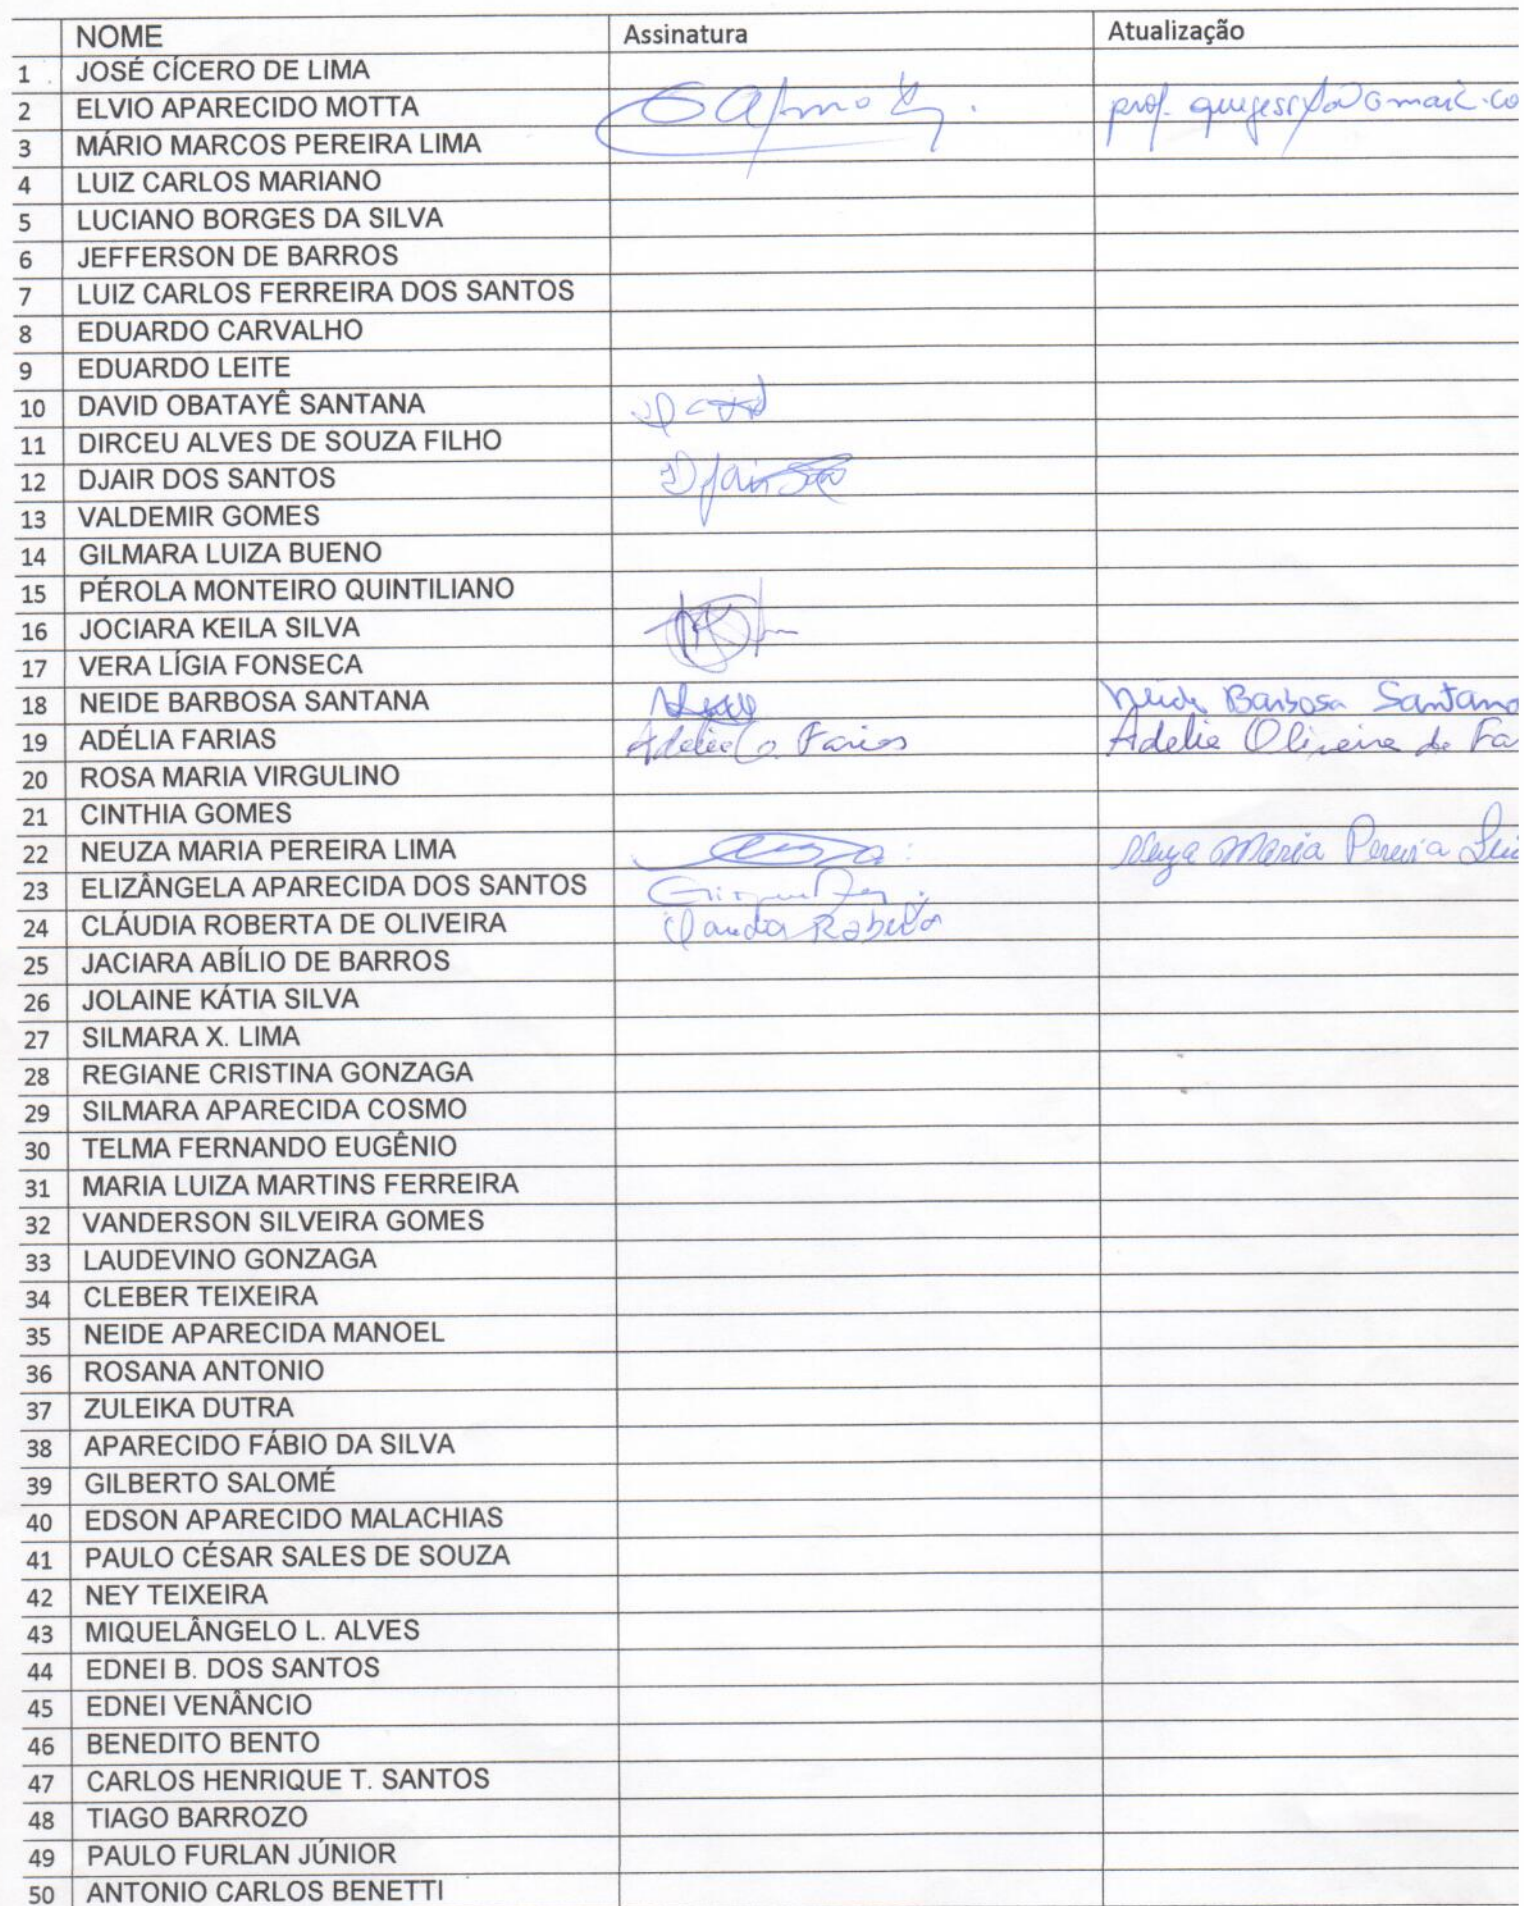 NOME Assinatura Atualização
1 JOSÉ CÍCERO DE LIMA
2 ELVIO APARECIDO MOTTA prof.
3 MÁRIO MARCOS PEREIRA LIMA
4 LUIZ CARLOS MARIANO
5 LUCIANO BORGES DA SILVA
6 JEFFERSON DE BARROS
7 LUIZ CARLOS FERREIRA DOS SANTOS
8 EDUARDO CARVALHO
9 EDUARDO LEITE
10 DAVID OBATAYÊ SANTANA
11 DIRCEU ALVES DE SOUZA FILHO
12 DJAIR DOS SANTOS Djair
13 VALDEMIR GOMES
14 GILMARA LUIZA BUENO
15 PÉROLA MONTEIRO QUINTILIANO
16 JOCIARA KEILA SILVA
17 VERA LÍGIA FONSECA
18 NEIDE BARBOSA SANTANA Neide Barbosa Santana
19 ADÉLIA FARIAS Adelia O. Farias Adelia Oliveira de Fa
20 ROSA MARIA VIRGULINO
21 CINTHIA GOMES
22 NEUZA MARIA PEREIRA LIMA Neuza Maria Pereira
23 ELIZÂNGELA APARECIDA DOS SANTOS
24 CLÁUDIA ROBERTA DE OLIVEIRA Claudia Roberta
25 JACIARA ABÍLIO DE BARROS
26 JOLAINE KÁTIA SILVA
27 SILMARA X. LIMA
28 REGIANE CRISTINA GONZAGA
29 SILMARA APARECIDA COSMO
30 TELMA FERNANDO EUGÊNIO
31 MARIA LUIZA MARTINS FERREIRA
32 VANDERSON SILVEIRA GOMES
33 LAUDEVINO GONZAGA
34 CLEBER TEIXEIRA
35 NEIDE APARECIDA MANOEL
36 ROSANA ANTONIO
37 ZULEIKA DUTRA
38 APARECIDO FÁBIO DA SILVA
39 GILBERTO SALOMÉ
40 EDSON APARECIDO MALACHIAS
41 PAULO CÉSAR SALES DE SOUZA
42 NEY TEIXEIRA
43 MIQUELÂNGELO L. ALVES
44 EDNEI B. DOS SANTOS
45 EDNEI VENÂNCIO
46 BENEDITO BENTO
47 CARLOS HENRIQUE T. SANTOS
48 TIAGO BARROZO
49 PAULO FURLAN JÚNIOR
50 ANTONIO CARLOS BENETTI